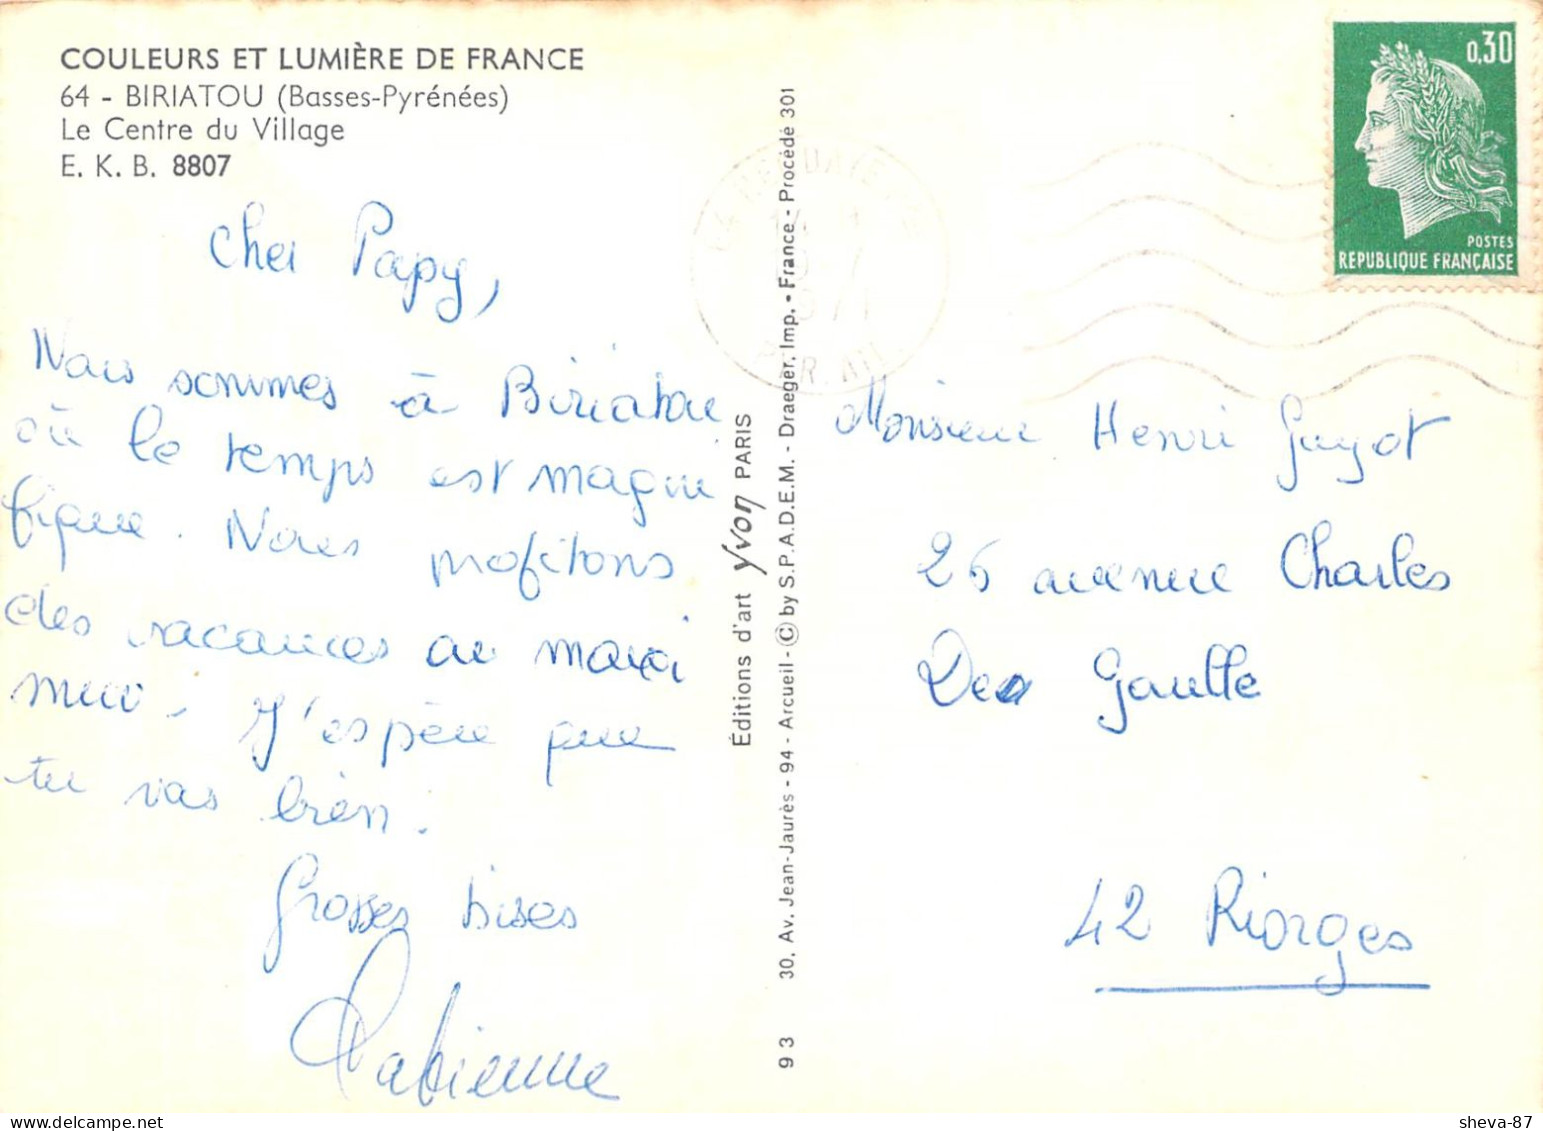 COULEURS ET LUMIÈRE DE FRANCE
64 - BIRIATOU (Basses-Pyrénées)
Le Centre du Village
E. K. B. 8807
Cher Papy,
Nous sommes à Biriatou
où le temps est magni
fique. Nous profitons
des vacances au maxi
mum. J'espère que
tu vas bien.
Grosses bises
Fabienne
Éditions d'art Yvon PARIS
93 30, Av. Jean-Jaurès - 94 - Arcueil - © by S.P.A.D.E.M. - Draeger, Imp. - France - Procédé 301
1971
0,30
POSTES
REPUBLIQUE FRANÇAISE
Monsieur Henri Guyot
26 avenue Charles
De Gaulle
42 Riorges
sheva-87